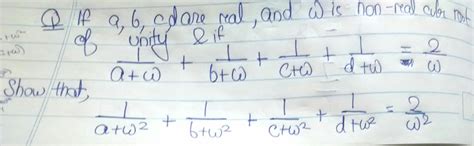 Q If a, b, c, d are real, and ω is non-real cube root
of unity & if
1/(a+ω) + 1/(b+ω) + 1/(c+ω) + 1/(d+ω) = 2/ω
Show that,
1/(a+ω²) + 1/(b+ω²) + 1/(c+ω²) + 1/(d+ω²) = 2/ω²